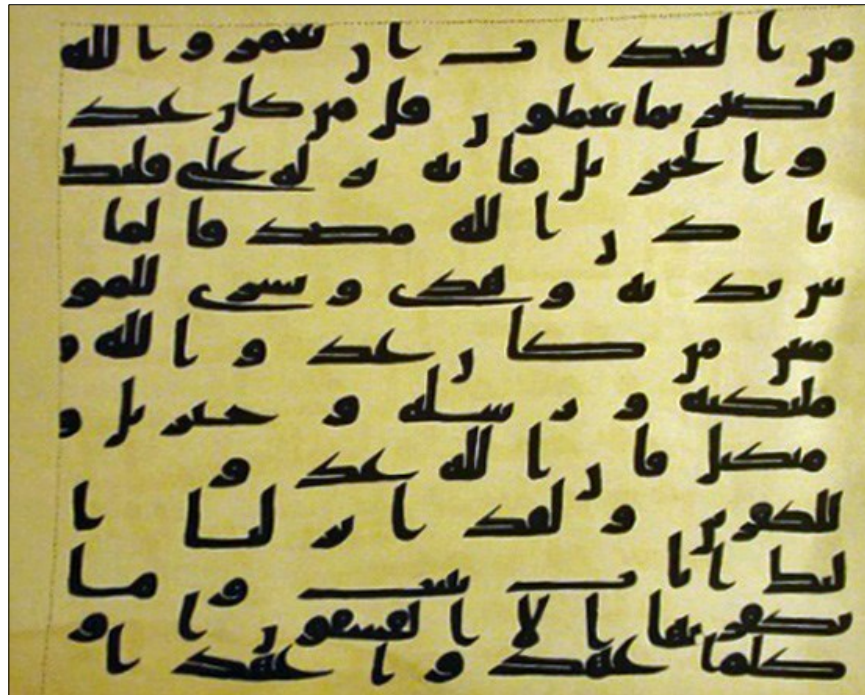 من العذاب ان يعمر والله
بصير بما يعملون قل من كان عد
وا لجبريل فانه نزله على قلبك
باذن الله مصدقا لما
بين يديه وهدى وبشرى للمو
منين من كان عدوا لله و
ملئكته ورسله وجبريل و
ميكل فان الله عدو
للكفرين ولقد انزلنا ا
ليك ايت بينت وما
يكفر بها الا الفسقون او
كلما عهدوا عهدا